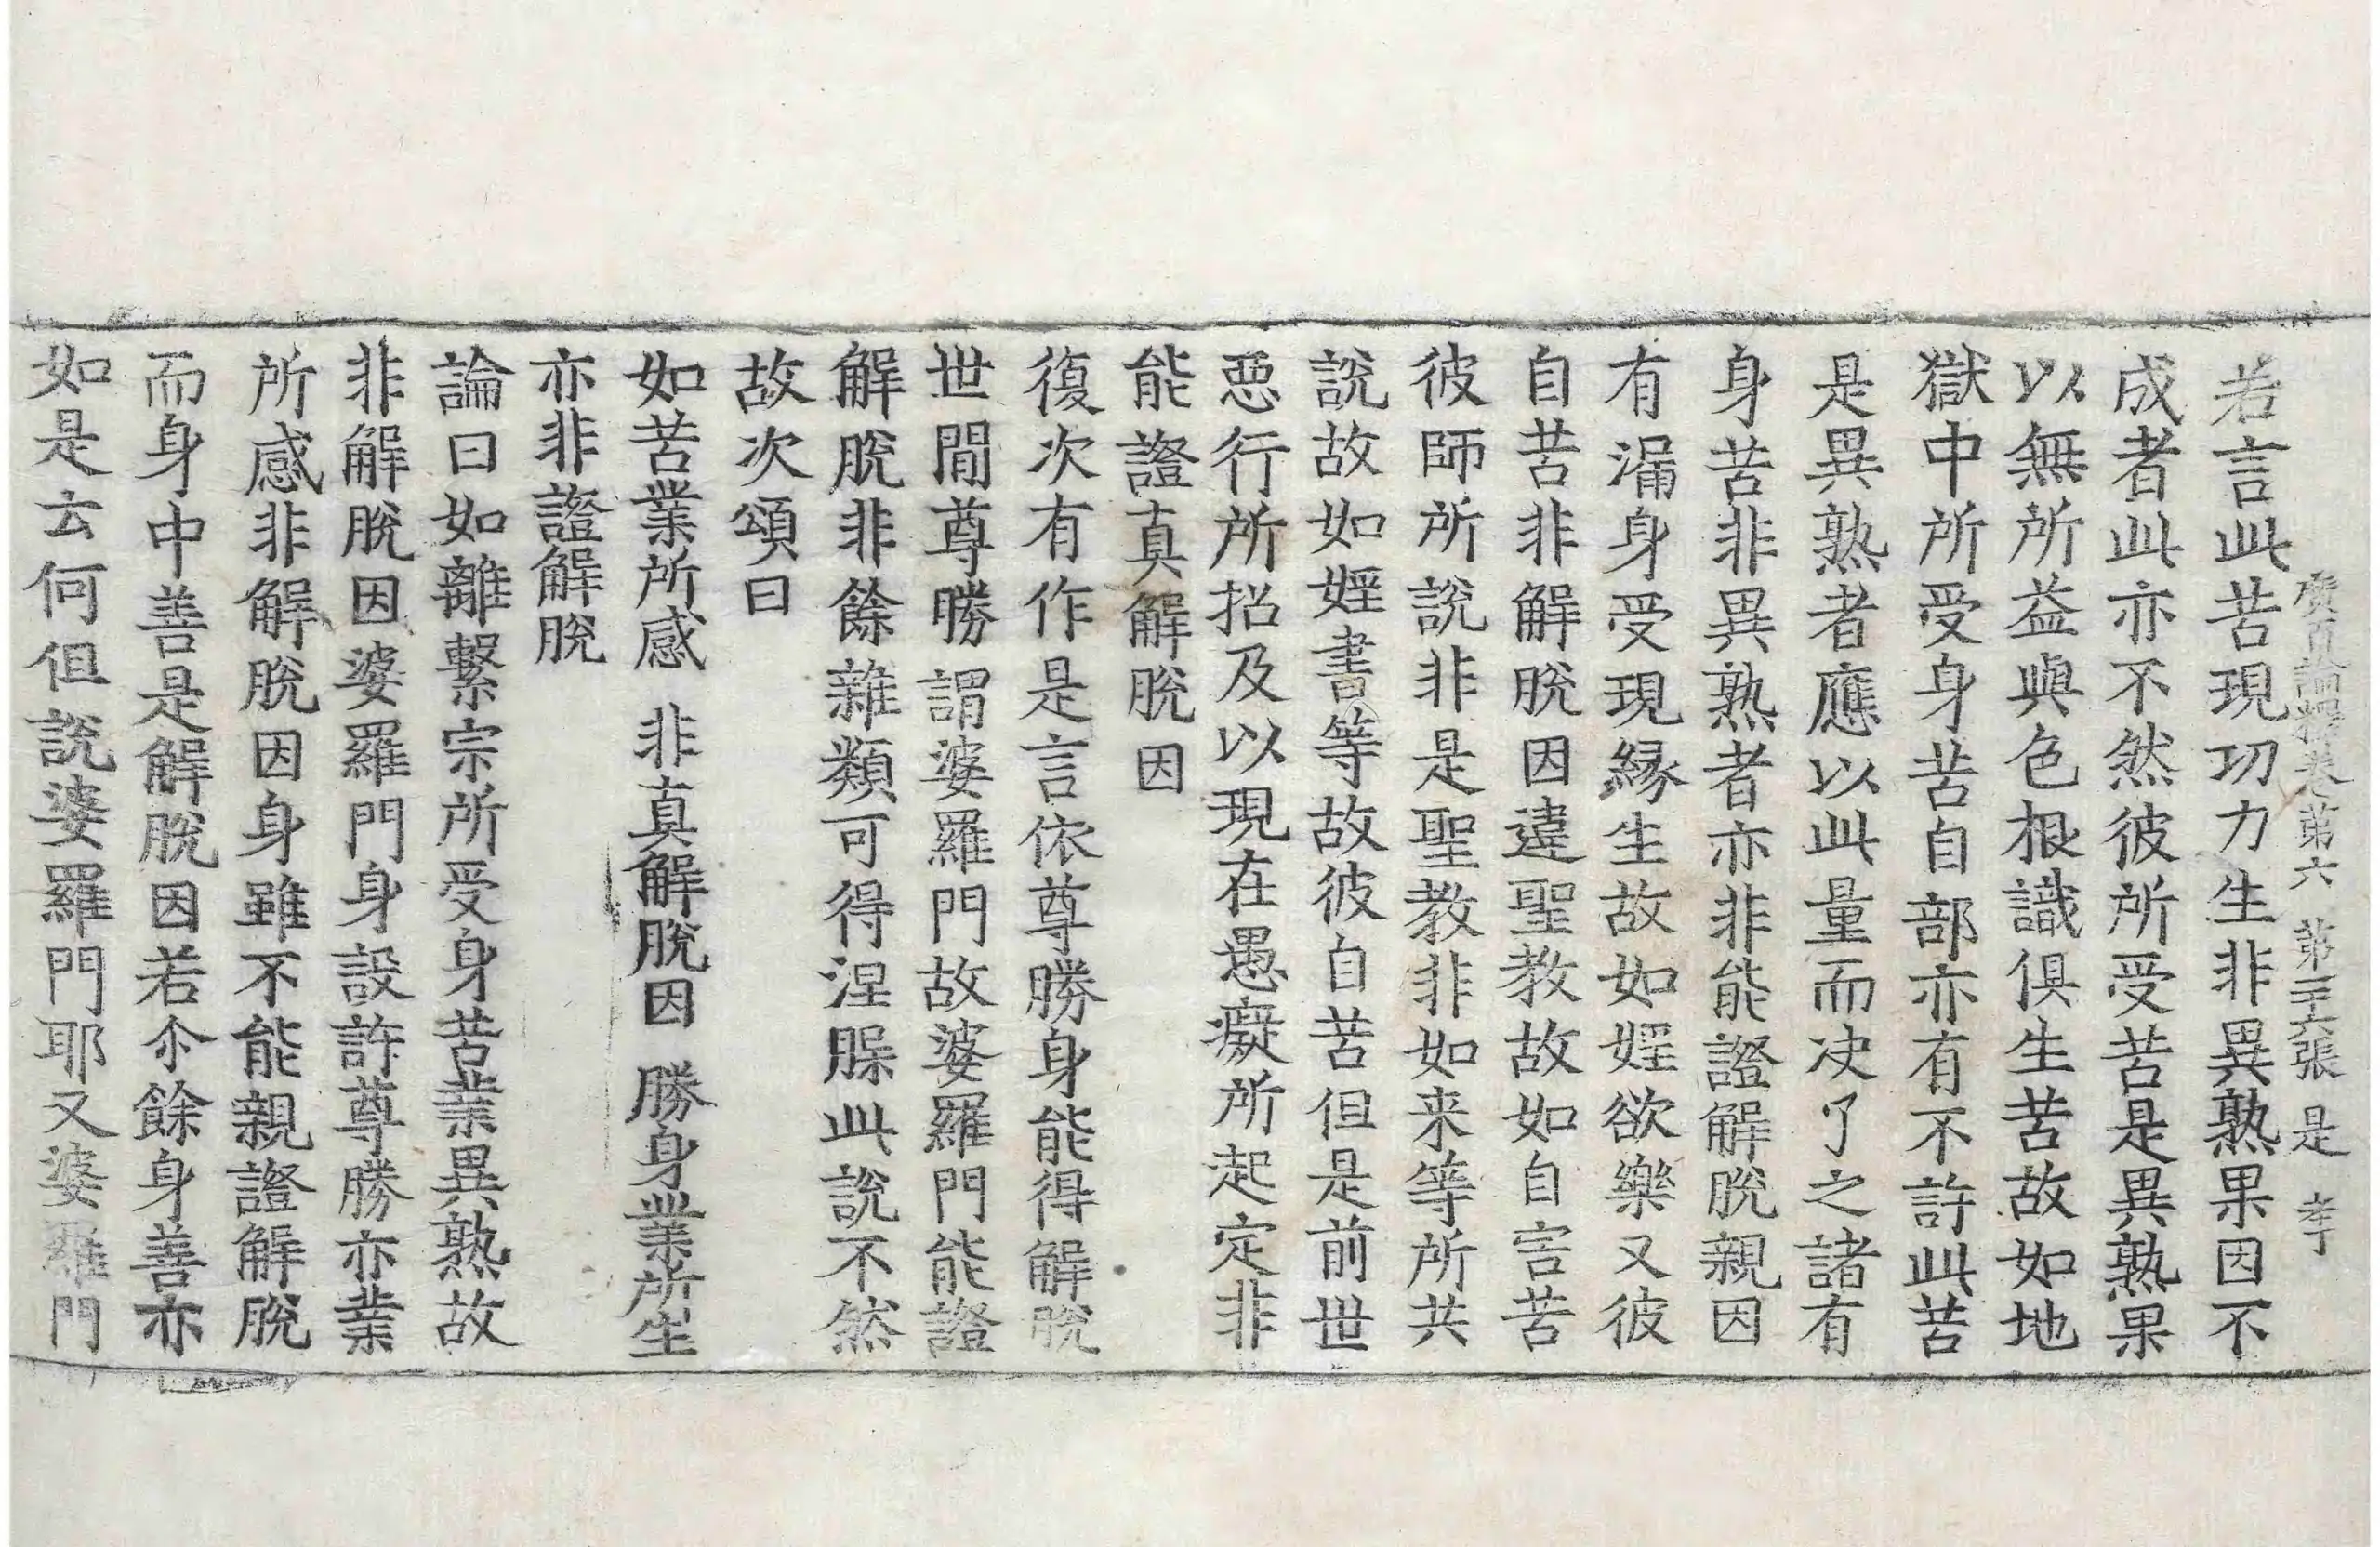 廣百論釋卷苐六 苐二十六張 是 孝
若言此苦現功力生非異熟果因不
成者此亦不然彼所受苦是異熟果
以無所益與色根識俱生苦故如地
獄中所受身苦自部亦有不許此苦
是異熟者應以此量而决了之諸有
身苦非異熟者亦非能證解脫親因
有漏身受現縁生故如婬欲樂又彼
自苦非解脫因違聖教故如自害苦
彼師所說非是聖教非如来等所共
說故如婬書等故彼自苦但是前世
惡行所招及以現在愚癡所起定非
能證真解脫因
復次有作是言依尊勝身能得解脫
世間尊勝謂婆羅門故婆羅門能證
解脫非餘雜類可得涅槃此說不然
故次頌曰
如苦業所感 非真解脫因 勝身業所生
亦非證解脫
論曰如離繫宗所受身苦業異熟故
非解脫因婆羅門身設許尊勝亦業
所感非解脫因身雖不能親證解脫
而身中善是解脫因若尒餘身善亦
如是云何但說婆羅門耶又婆羅門